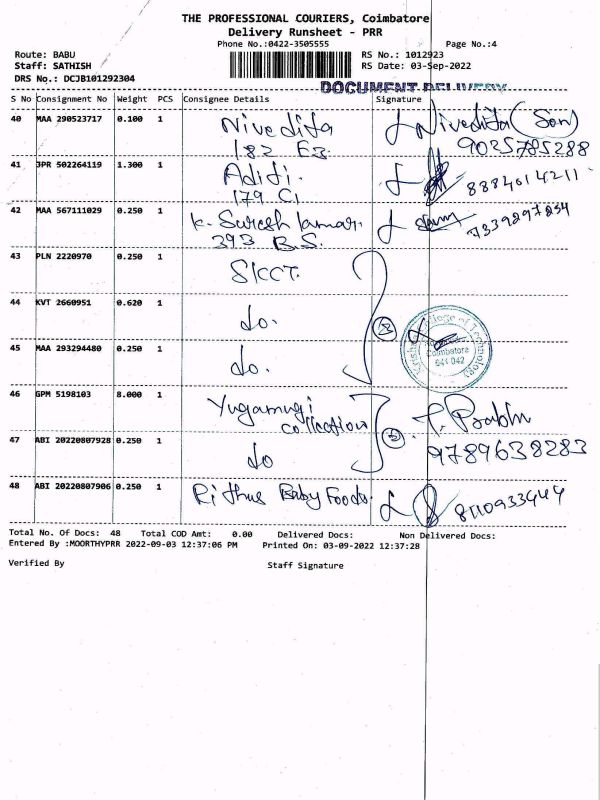 THE PROFESSIONAL COURIERS, Coimbatore
Delivery Runsheet - PRR
Phone No.:0422-3505555
Page No.:4
Route: BABU
RS No.: 1012923
Staff: SATHISH
RS Date: 03-Sep-2022
DRS No.: DCJB101292304
DOCUMENT DELIVERY
S No Consignment No Weight PCS Consignee Details Signature
40 MAA 290523717 0.100 1 Nivedita Nivedita (Son)
182 E3 9025785288
41 JPR 502264119 1.300 1 Aditi. 8884614211
179 C1
42 MAA 567111029 0.250 1 K. Suresh kumar. 7339897854
393 B.S.
43 PLN 2220970 0.250 1 SKCT.
44 KVT 2660951 0.620 1 do.
College of Technology
Coimbatore
641 042
45 MAA 293294480 0.250 1 do.
46 GPM 5198103 8.000 1 Yugamugi
collection T. Prabhu
47 ABI 20220807928 0.250 1 do 9789638283
48 ABI 20220807906 0.250 1 Rithus Baby Foods. 8110933449
Total No. Of Docs: 48 Total COD Amt: 0.00 Delivered Docs: Non Delivered Docs:
Entered By :MOORTHYPRR 2022-09-03 12:37:06 PM Printed On: 03-09-2022 12:37:28
Verified By Staff Signature